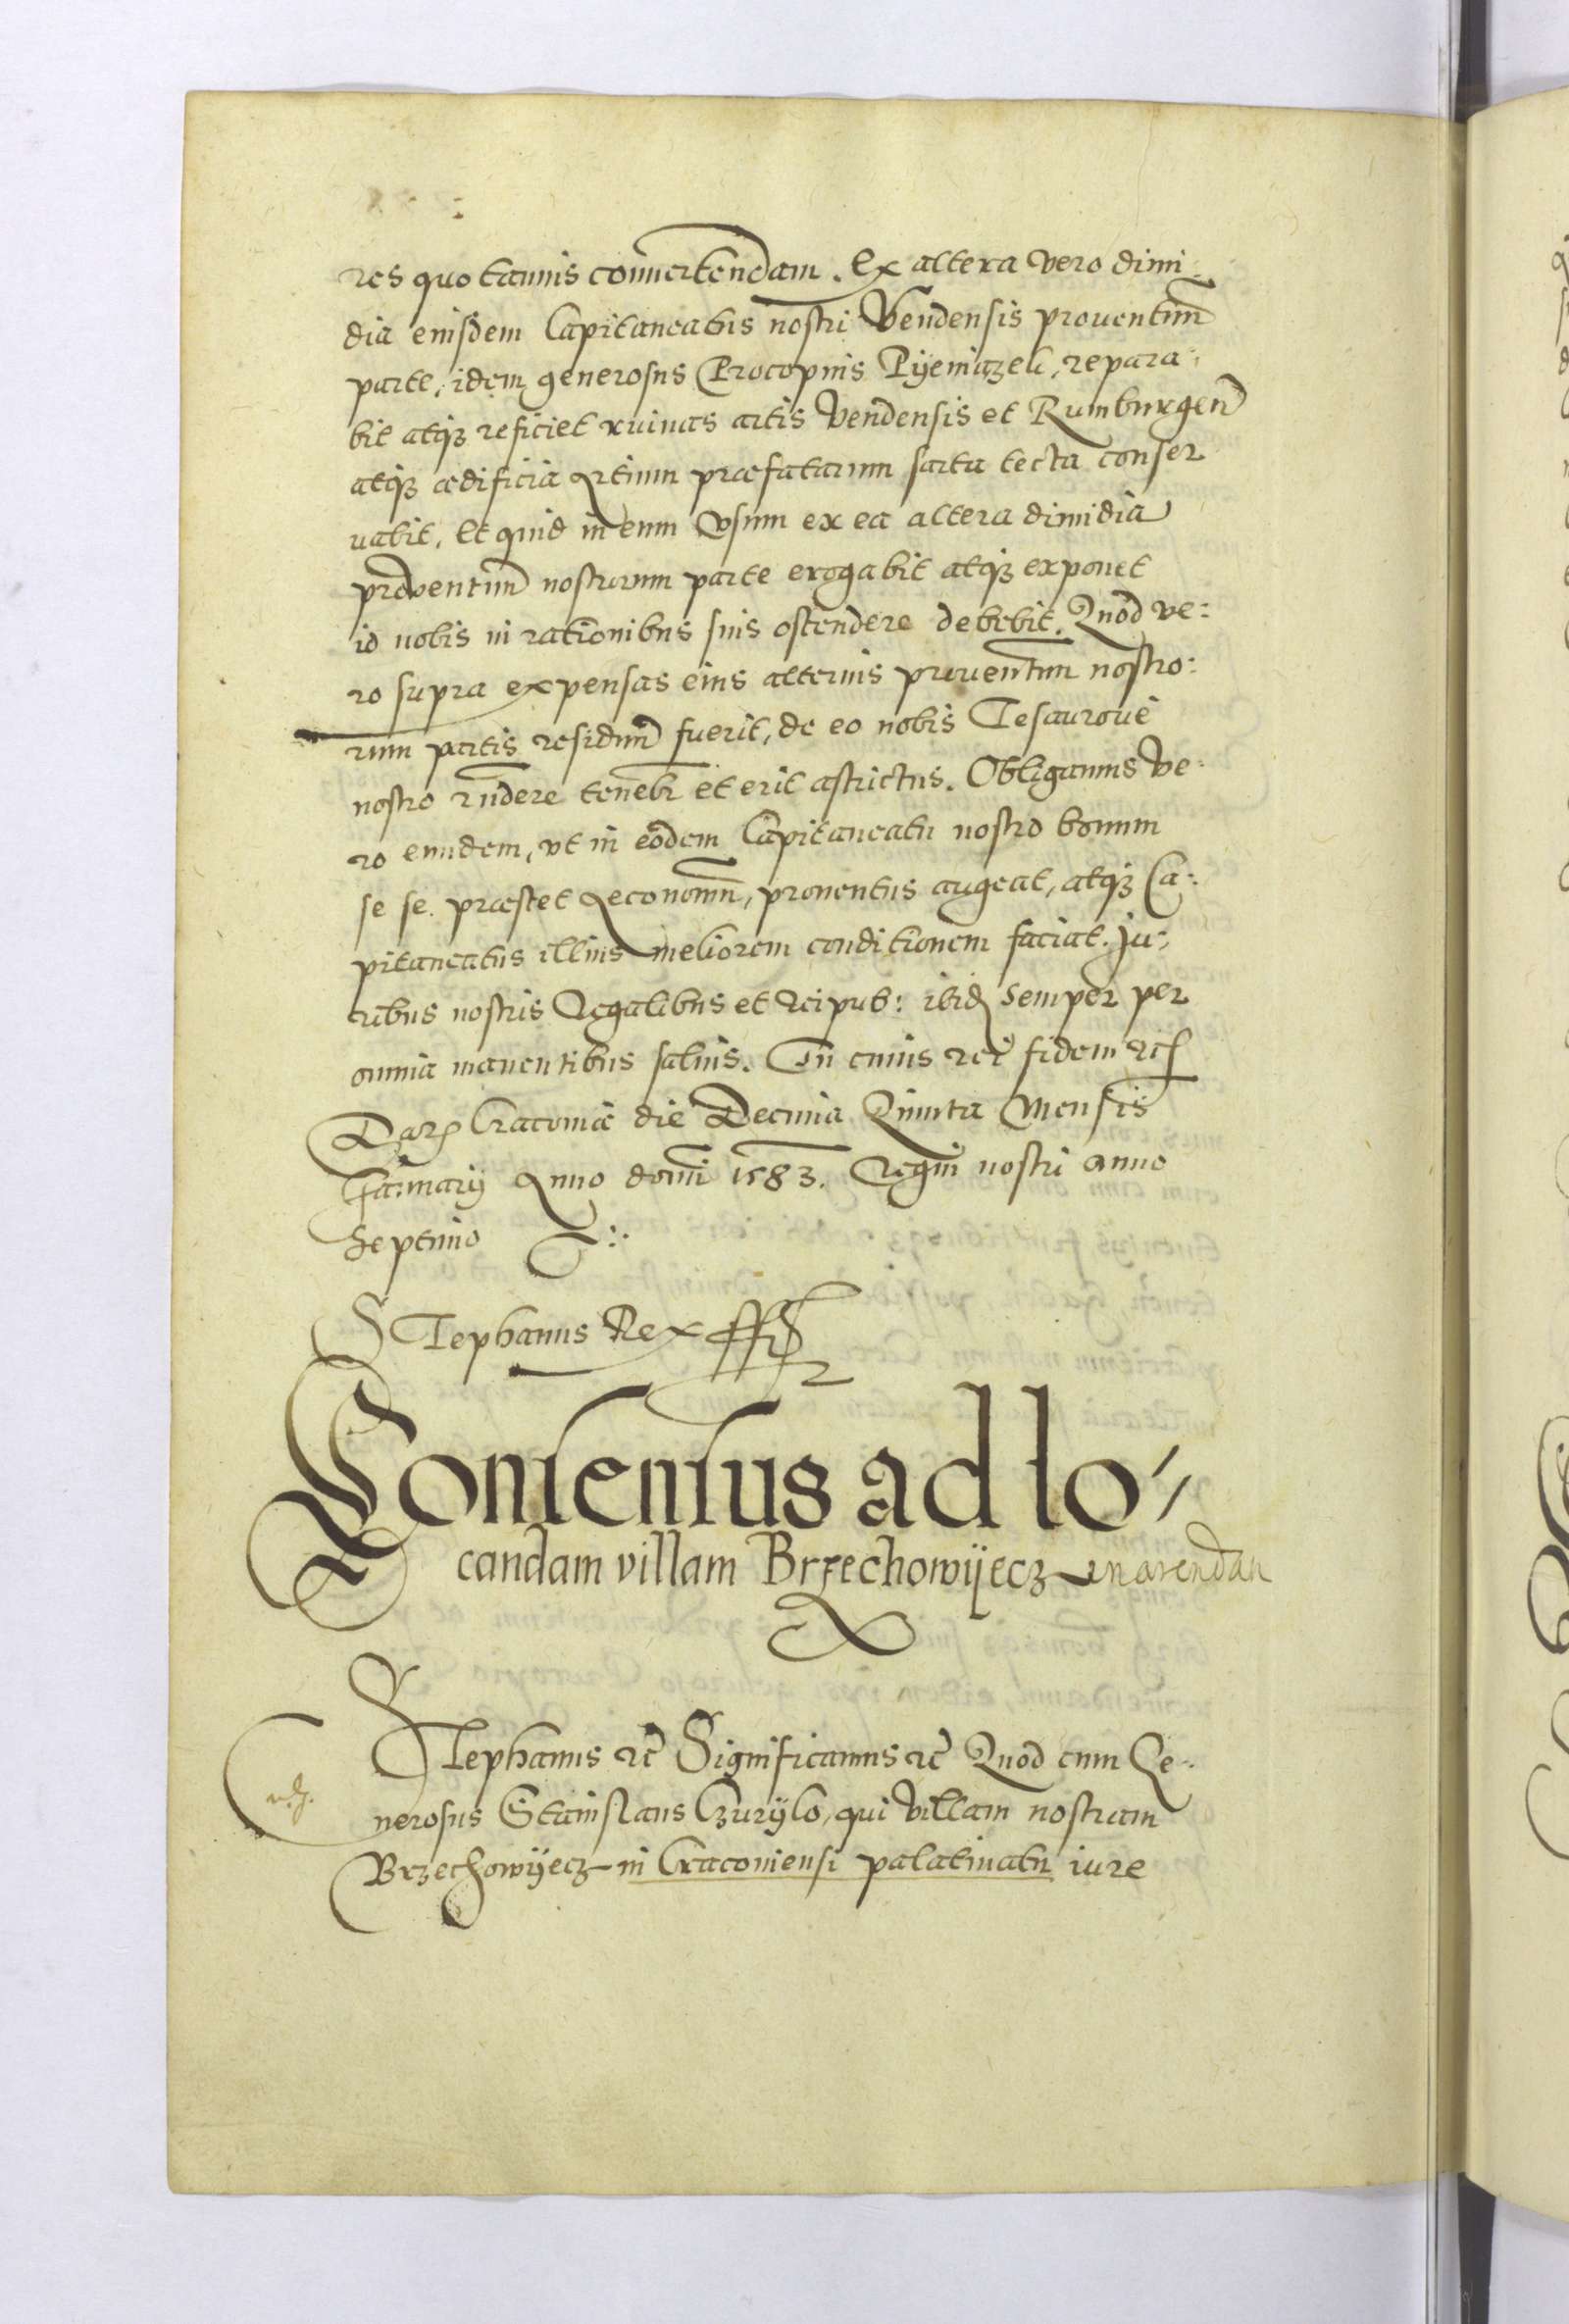 res quotannis conuertendam. Ex altera vero dimi-
dia eiusdem Capitaneatus nostri Vendensis prouentuum
parte, idem generosus Procopius Pÿeniązek, repara-
bit atq3 reficiet ruinas arcis Vendensis et Rumburgen
atq3 ædificia Arcium præfatarum sarta tecta conser
uabit. Et quid in eum vsum ex ea altera dimidia
prouentuum nostrorum parte erogabit atq3 exponet
id nobis in rationibus suis ostendere debebit. Quod ve:
ro supra expensas eius alterius prouentuum nostro:
rum partis residuum fuerit, de eo nobis Tesauroue
nostro rndere teneb et erit astrictus. Obligamus ve-
ro eundem, vt in eodem Capitaneatu nostro bonum
se se præstet œconomum, prouentus augeat, atq3 Ca-
pitaneatus illius meliorem conditionem faciat. Iu-
ribus nostris Regalibus et Reipub: ibid semper per
omnia manentibus saluis. In cuius rei fidem etc
Dat Cracouiæ die Decima Quinta Mensis
Januarij Anno domi 1583. Regni nostri anno
Septimo
Stephanus Rex
Consensus ad lo-
candam villam Brzechowÿecz in arendam
Stephanus etc Significamus etc Quod cum Ge-
nerosus Stanislaus Czurÿlo, qui villam nostram
Brzechowÿecz in Cracouiensi palatinatu iure